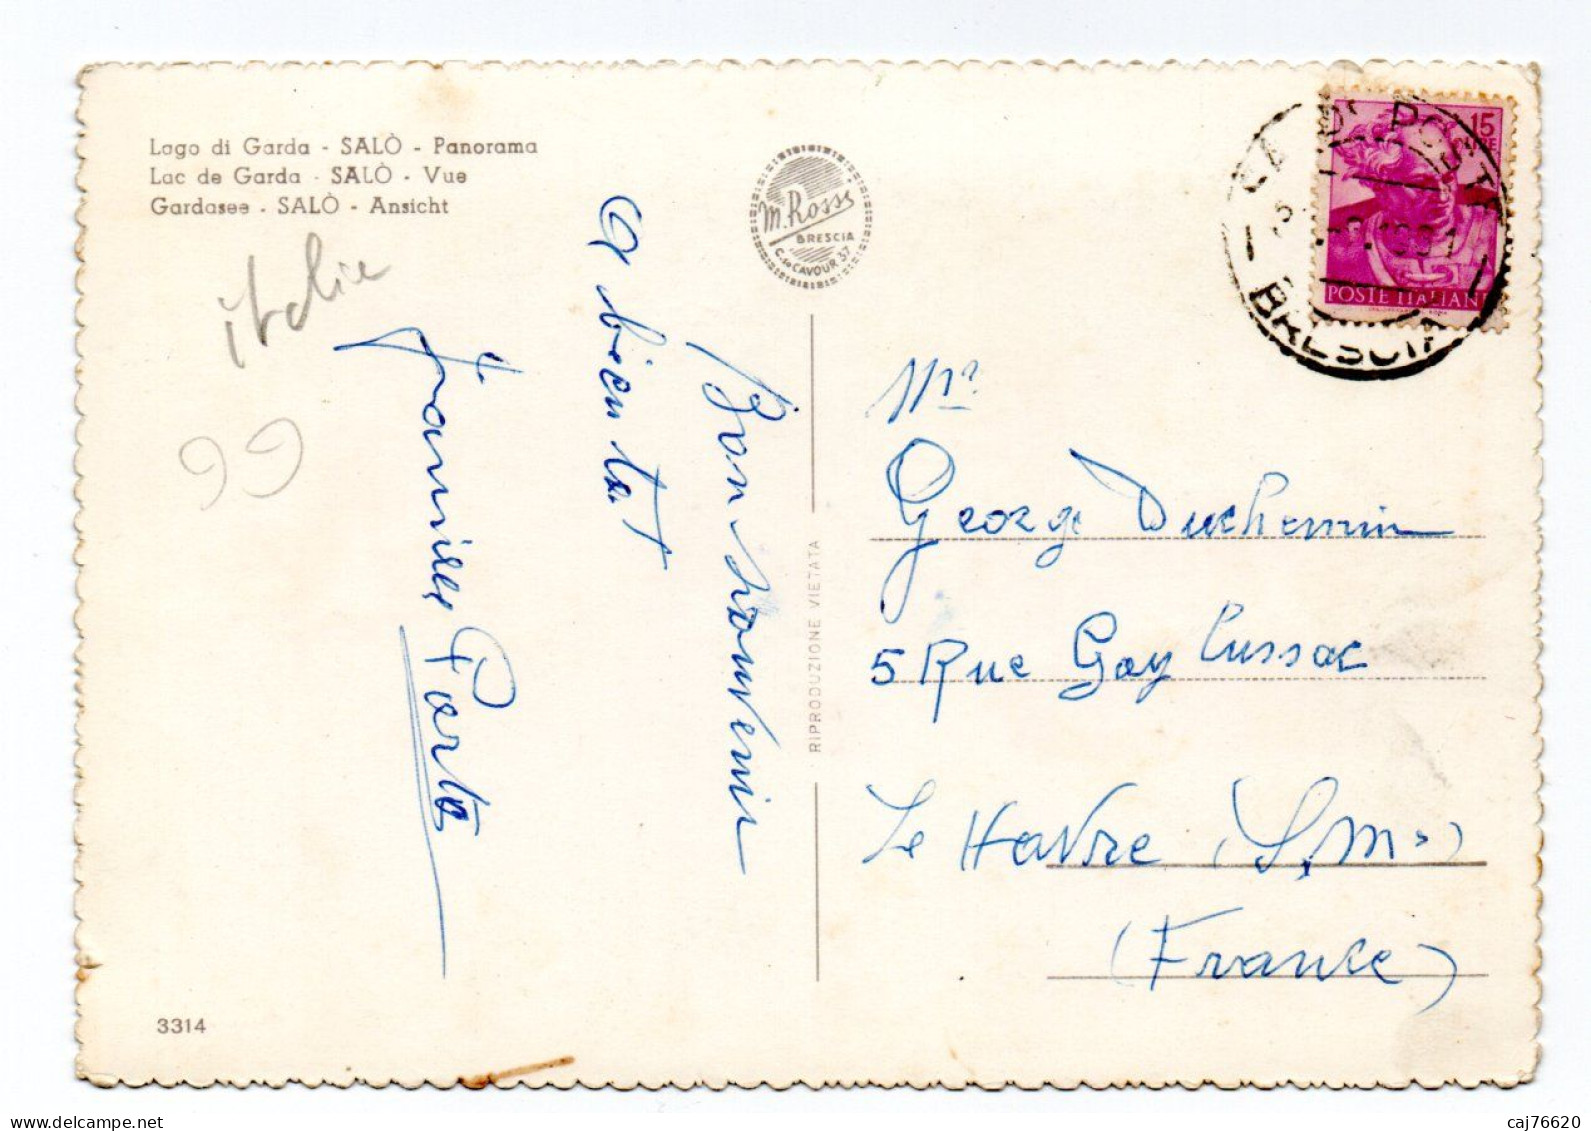 Lago di Garda - SALÒ - Panorama
Lac de Garda - SALÒ - Vue
Gardasee - SALÒ - Ansicht
italie
99
M. Rossi
BRESCIA
C.so CAVOUR 37
15
LIRE
POSTE ITALIANE
BRESCIA
Bon souvenir
a bientot
Porta
RIPRODUZIONE VIETATA
Mr
George Duchemin
5 Rue Gay Lussac
Le Havre (S. M.)
(France)
3314
www.delcampe.net
caj76620